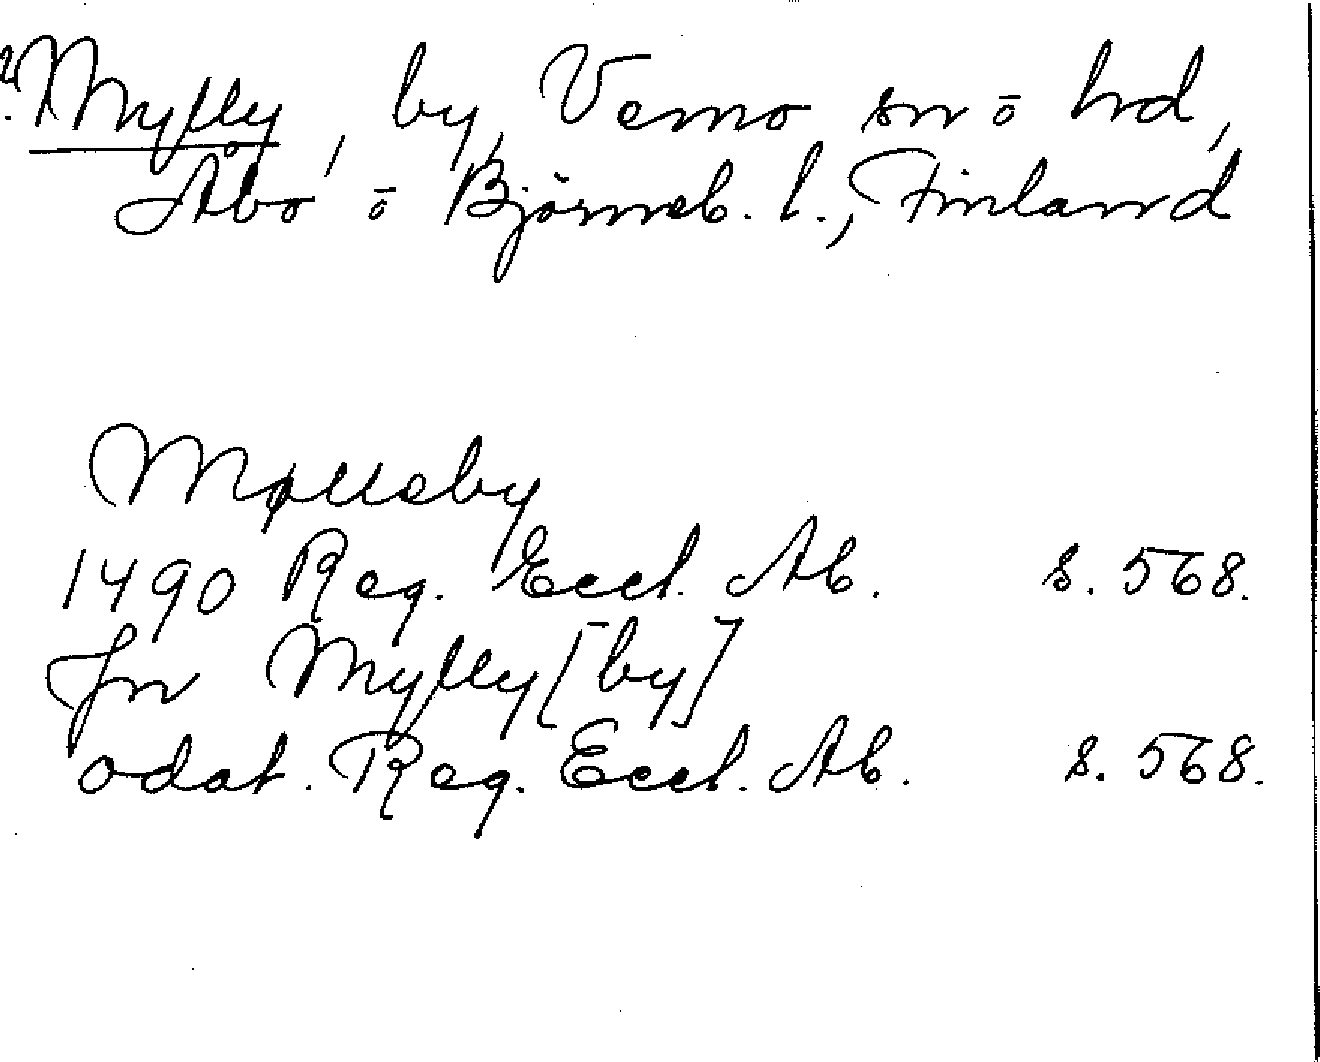 2. Mylly, by, Vemo sn ō hd,
Åbo ō Björneb. l., Finland
Mølleby
1490 Reg. Eccl. Ab. s. 568.
Jn Mylly[by]
odat. Reg. Eccl. Ab. s. 568.